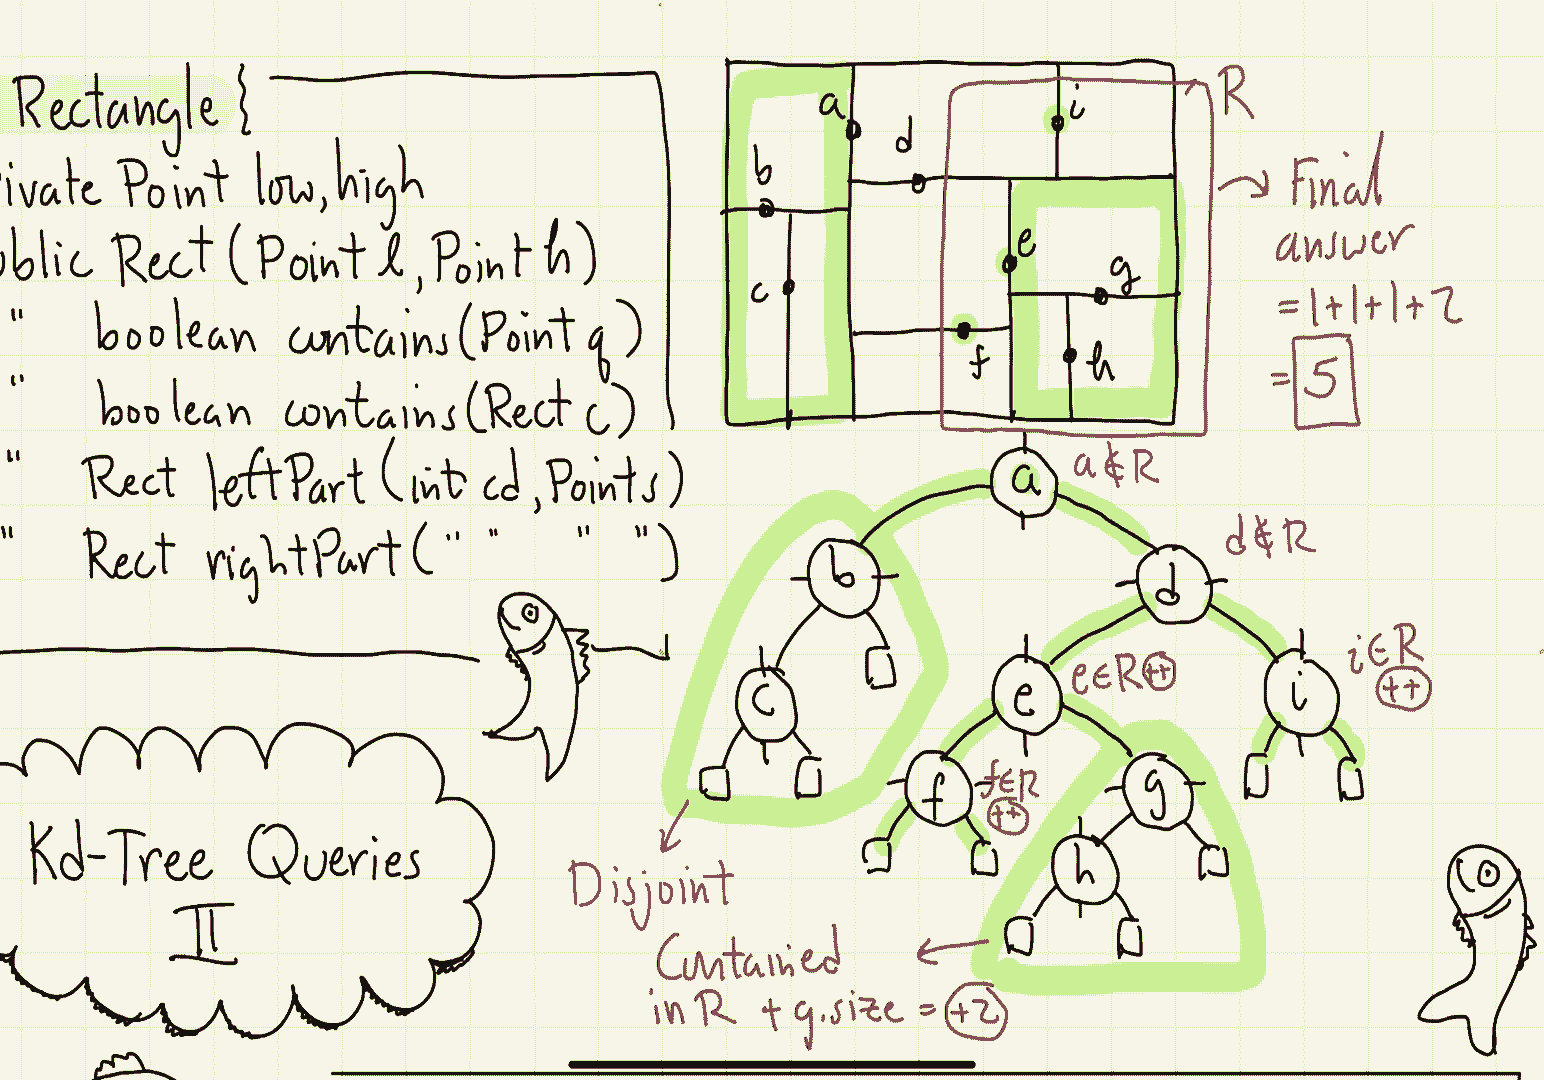 Rectangle {
ivate Point low, high
ublic Rect (Point l, Point h)
" boolean contains (Point q)
" boolean contains (Rect c)
" Rect leftPart (int cd, Point s)
" Rect rightPart ( " " " " )
Kd-Tree Queries
II
a
b
c
d
e
f
g
h
i
R
Final
answer
= 1+1+1+2
= 5
a
a ∉ R
b
d
d ∉ R
c
e
e ∈ R ++
i
i ∈ R
++
f
f ∈ R
++
g
h
Disjoint
Contained
in R + g.size = +2